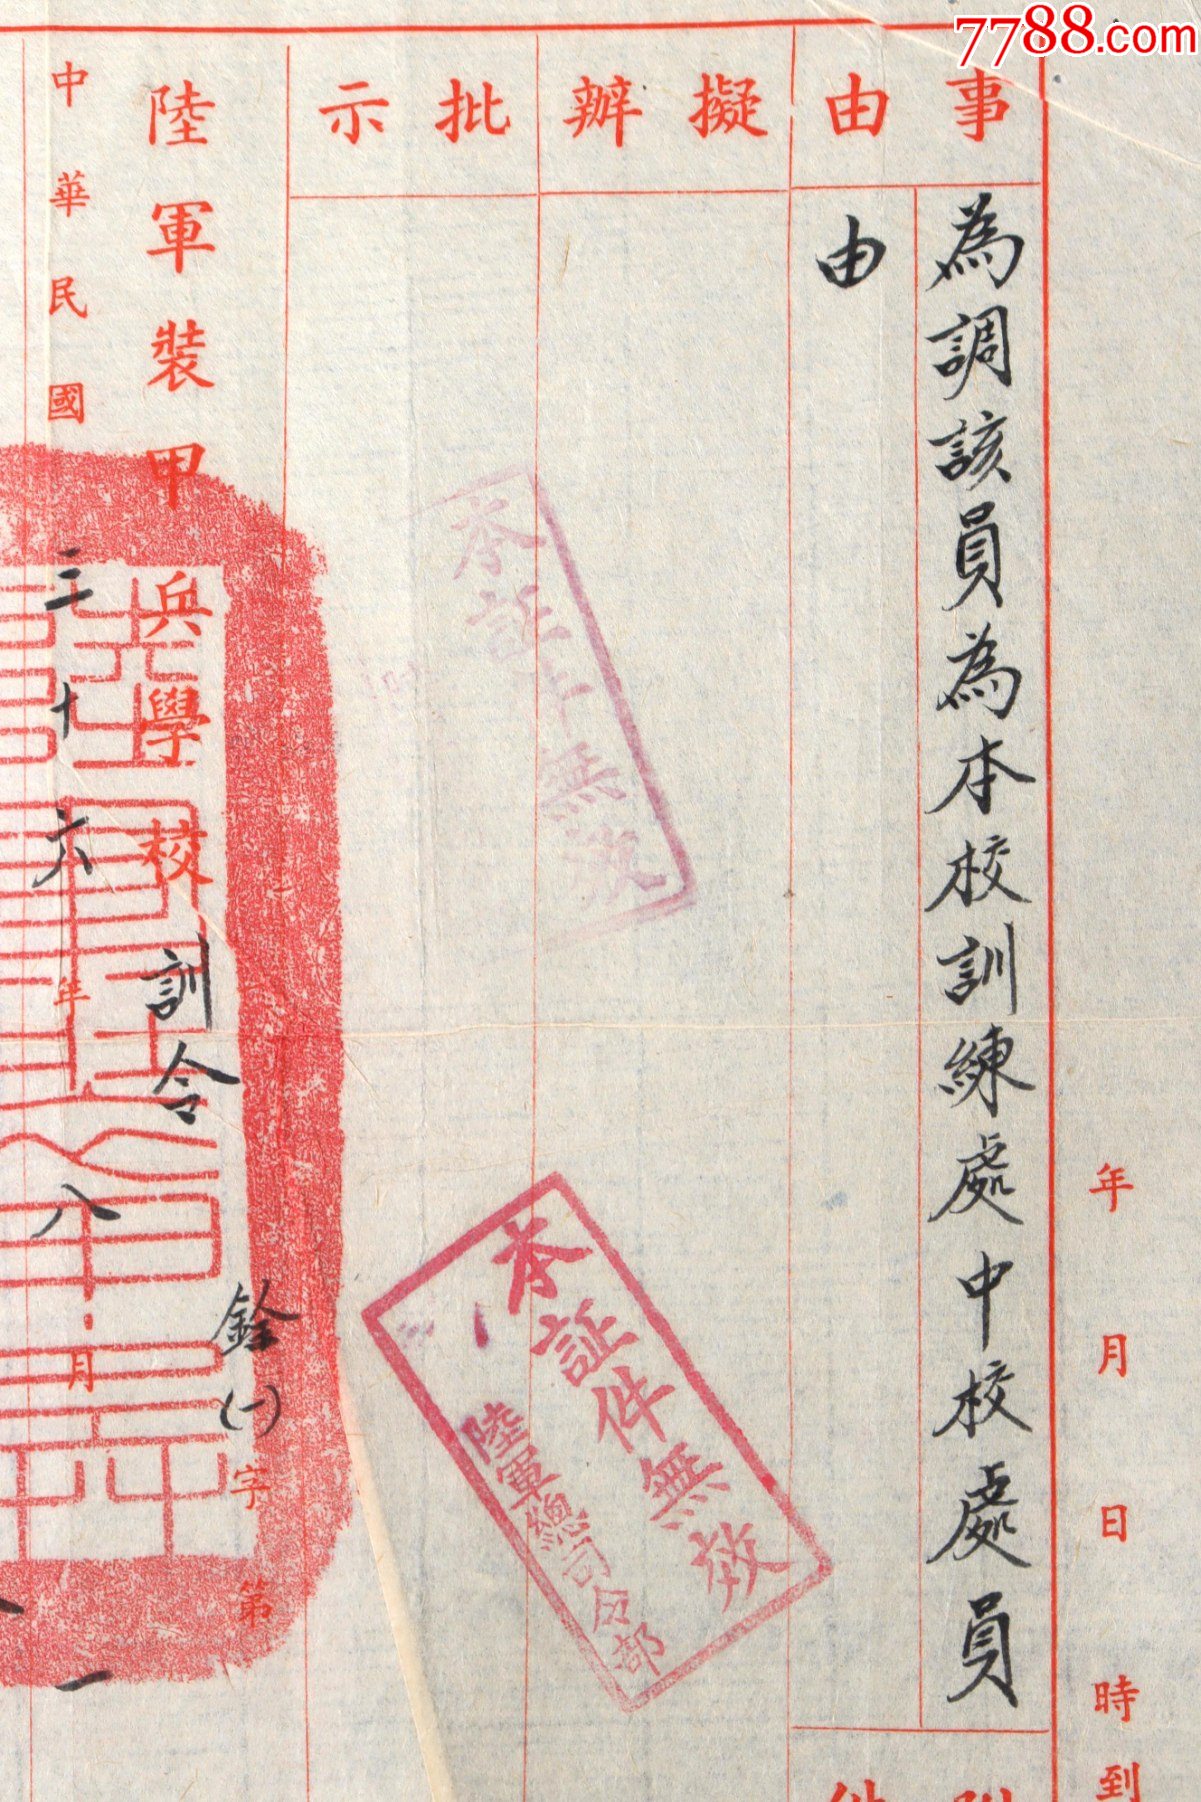 7788.com
年月日時到
事由
為調該員為本校訓練處中校處員
由
附件
擬辦
批示
本証件無效
本証件無效
陸軍總司令部
陸軍裝甲兵學校訓令
銓(一)字第
中華民國三十六年八月一